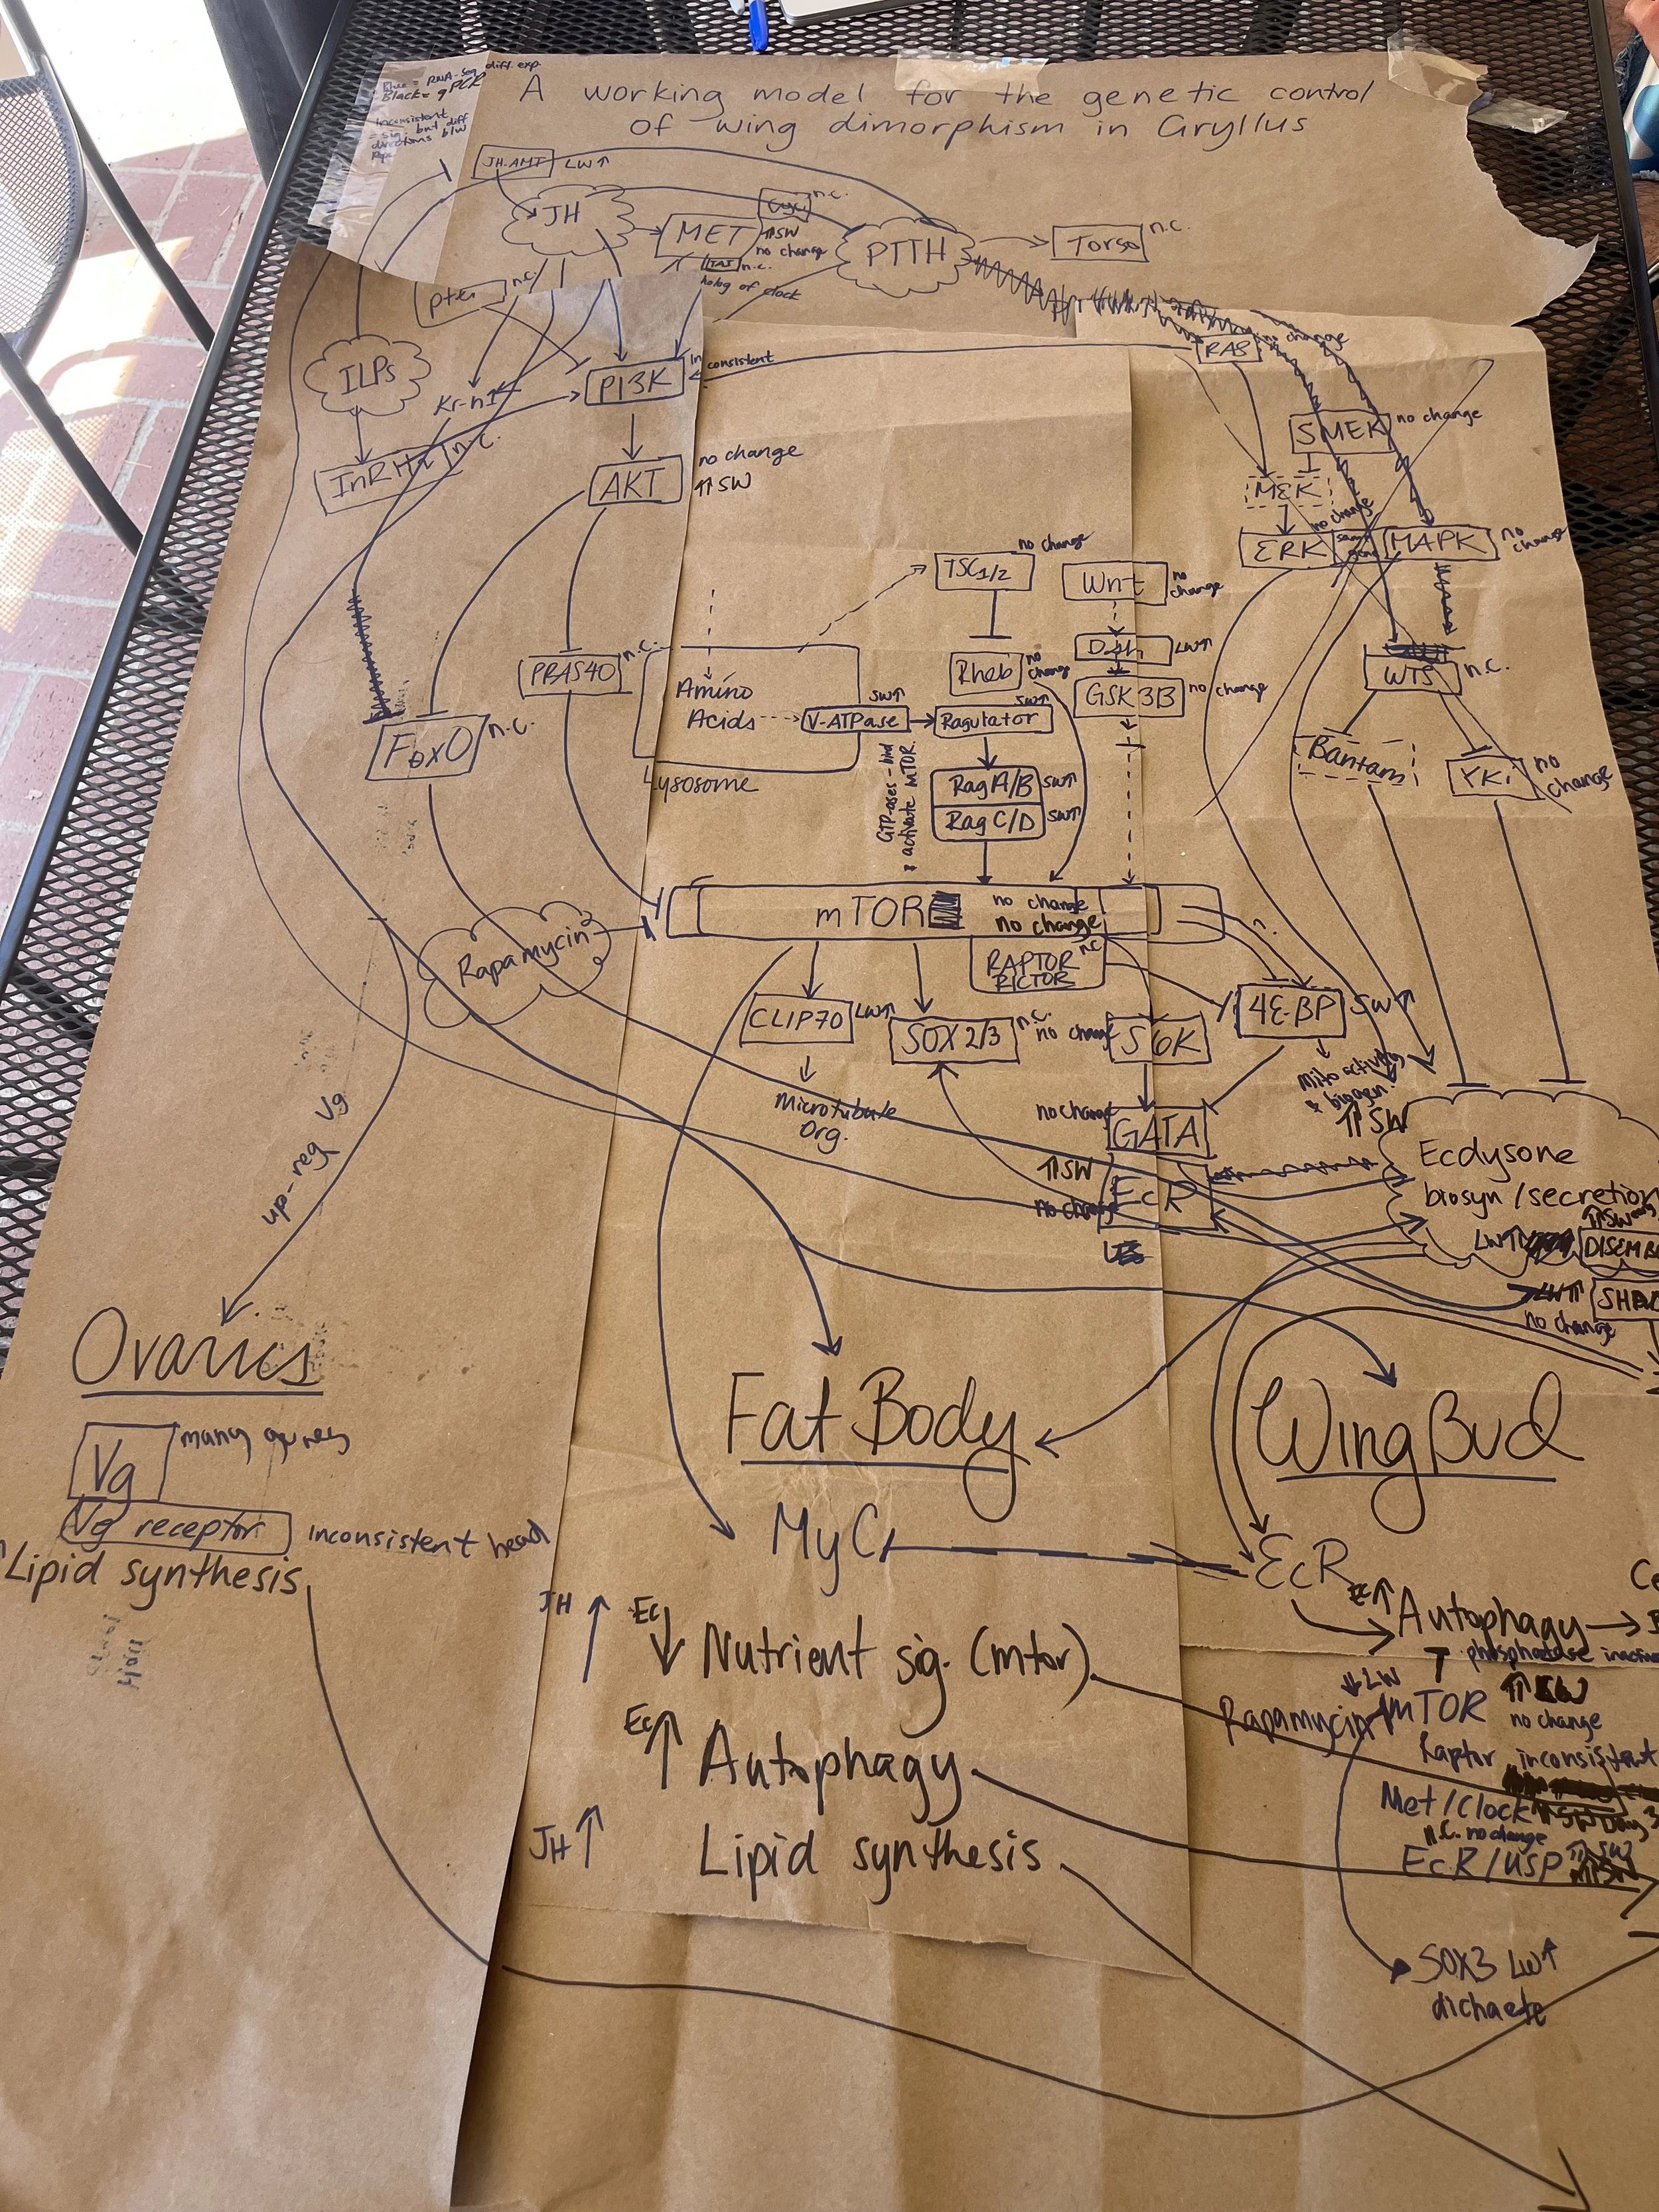 Blue = RNA-Seq diff. exp.
Black = qPCR
inconsistent
= sig. but diff
directions b/w
A working model for the genetic control
of wing dimorphism in Gryllus
JH-AMT LW↑
JH
MET ↑SW
no change
n.c.
n.c.
holog of clock
PTTH
Torso n.c.
n.c.
ILPs
Kr-h1
PI3K inconsistent
RAS no change
InR n.c.
AKT no change
↑SW
SMEK no change
MEK
no change
ERK same gene MAPK no change
TSC1/2 no change
Wnt no change
PRAS40 n.c.
Rheb no change
Dsh LW↑
GSK3B no change
WTS n.c.
Amino
Acids
V-ATPase SW↑
Ragulator SW↑
FoxO n.c.
Lysosome
GTP-ases - bind
& activate mTOR
RagA/B SW↑
RagC/D SW↑
Bantam
YKi no change
mTOR no change
no change
RAPTOR n.c.
RICTOR
Rapamycin
CLIP70 LW↑
SOX2/3 n.c.
no change S6K
4E-BP SW↑
Microtubule
Org.
Mito activity
& biogen.
↑SW
no change GATA
↑SW
no change
EcR
Ecdysone
biosyn/secretion
↑SW
LW↑
LW↑
no change
up-reg Vg
Ovaries
Vg many genes
Vg receptor inconsistent head
Lipid synthesis
Fat Body
MyC
JH ↑ Ec ↓ Nutrient sig. (mtor)
Ec ↑ Autophagy
JH ↑ Lipid synthesis
Wing Bud
EcR
Ec↑ Autophagy →
phosphatase
↓LW
Rapamycin mTOR
no change
Raptor inconsistent
Met/Clock ↑SW Day 3
n.c. no change
EcR/USP
SOX3 LW↑
dichaete